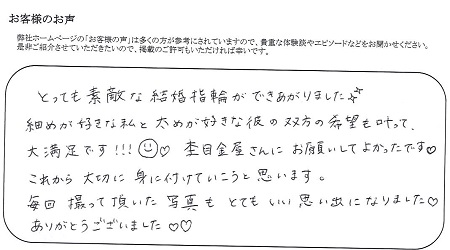 お客様のお声
弊社ホームページの「お客様の声」は多くの方が参考にされていますので、貴重な体験談やエピソードなどをお聞かせください。
是非ご紹介させていただきたいので、掲載のご許可もいただければ幸いです。
とっても素敵な結婚指輪ができあがりました☆
細めが好きな私と太めが好きな彼の双方の希望も叶って、
大満足です!!!☺♡ 杢目金屋さんにお願いしてよかったです♡
これから大切に身に付けていこうと思います。
毎回撮って頂いた写真もとてもいい思い出になりました♡
ありがとうございました♡♡